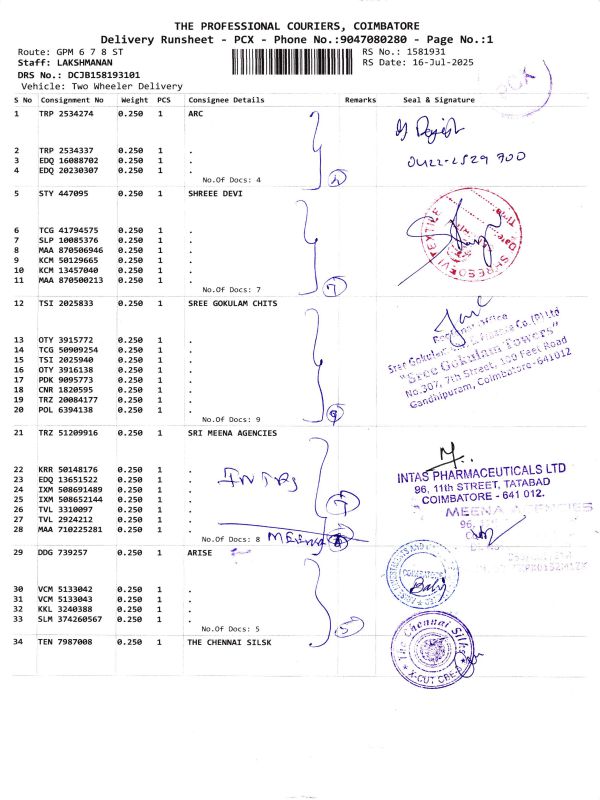 THE PROFESSIONAL COURIERS, COIMBATORE
Delivery Runsheet - PCX - Phone No.:9047080280 - Page No.:1
Route: GPM 6 7 8 ST
RS No.: 1581931
Staff: LAKSHMANAN
RS Date: 16-Jul-2025
DRS No.: DCJB158193101
Vehicle: Two Wheeler Delivery
PCX
S No Consignment No Weight PCS Consignee Details Remarks Seal & Signature
1 TRP 2534274 0.250 1 ARC
2 TRP 2534337 0.250 1 .
3 EDQ 16088702 0.250 1 .
4 EDQ 20230307 0.250 1 .
No.Of Docs: 4
0422-2529 700
5 STY 447095 0.250 1 SHREEE DEVI
6 TCG 41794575 0.250 1 .
7 SLP 10085376 0.250 1 .
8 MAA 870506946 0.250 1 .
9 KCM 50129665 0.250 1 .
10 KCM 13457040 0.250 1 .
11 MAA 870500213 0.250 1 .
No.Of Docs: 7
7
12 TSI 2025833 0.250 1 SREE GOKULAM CHITS
13 OTY 3915772 0.250 1 .
14 TCG 50909254 0.250 1 .
15 TSI 2025940 0.250 1 .
16 OTY 3916138 0.250 1 .
17 PDK 9095773 0.250 1 .
18 CNR 1820595 0.250 1 .
19 TRZ 20084177 0.250 1 .
20 POL 6394138 0.250 1 .
No.Of Docs: 9
9
"Sree Gokulam Towers"
No.307, 7th Street, 100 Feet Road
Gandhipuram, Coimbatore-641012
21 TRZ 51209916 0.250 1 SRI MEENA AGENCIES
22 KRR 50148176 0.250 1 .
23 EDQ 13651522 0.250 1 .
24 IXM 508691489 0.250 1 .
25 IXM 508652144 0.250 1 .
26 TVL 3310097 0.250 1 .
27 TVL 2924212 0.250 1 .
28 MAA 710225281 0.250 1 .
No.Of Docs: 8
INTAS
INTAS PHARMACEUTICALS LTD
96, 11th STREET, TATABAD
COIMBATORE - 641 012.
29 DDG 739257 0.250 1 ARISE
30 VCM 5133042 0.250 1 .
31 VCM 5133043 0.250 1 .
32 KKL 3240388 0.250 1 .
33 SLM 374260567 0.250 1 .
No.Of Docs: 5
5
34 TEN 7987008 0.250 1 THE CHENNAI SILSK
The Chennai Silks
X-CUT CBE